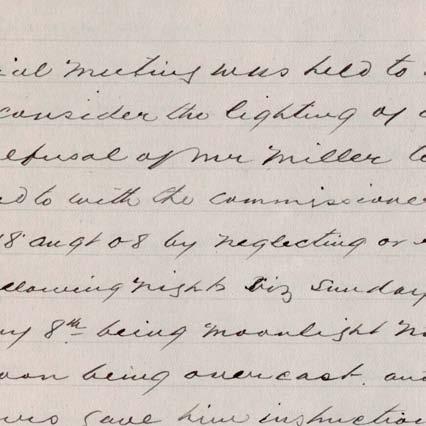 ial meeting was held to
consider the lighting of
efusal of Mr Miller to
ed to with the commissione
18 augt 08 by neglecting or
llowing nights viz Sunday
ay 8th being moonlight n
oon being overcast. and
ers gave him instruction